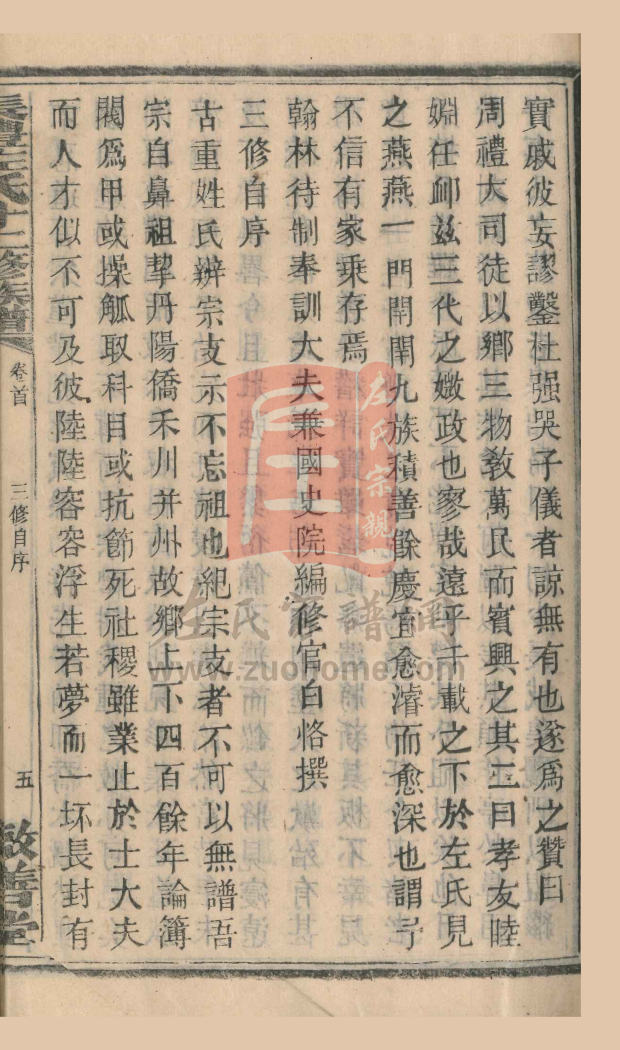 實戚彼妄謬鑿杜强哭子儀者諒無有也遂爲之贊曰
周禮大司徒以鄉三物敎萬民而賓興之其二曰孝友睦
婣任卹玆三代之媺政也寥哉遠乎千載之下於左氏見
之燕燕一門閈閈九族積善餘慶宜愈濬而愈深也謂予
不信有家乘存焉
翰林待制奉訓大夫兼國史院編修官白恪撰
三修自序
古重姓氏辨宗支示不忘祖也紀宗支者不可以無譜吾
宗自鼻祖挈丹陽僑禾川并州故鄉上下四百餘年論簿
閥爲甲或操觚取科目或抗節死社稷雖業止於士大夫
而人才似不可及彼陸陸容容浮生若夢而一坏長封有
左氏十二修族譜
卷首
三修自序
五
敬善堂
左氏宗親
左氏家譜網
www.zuohome.com